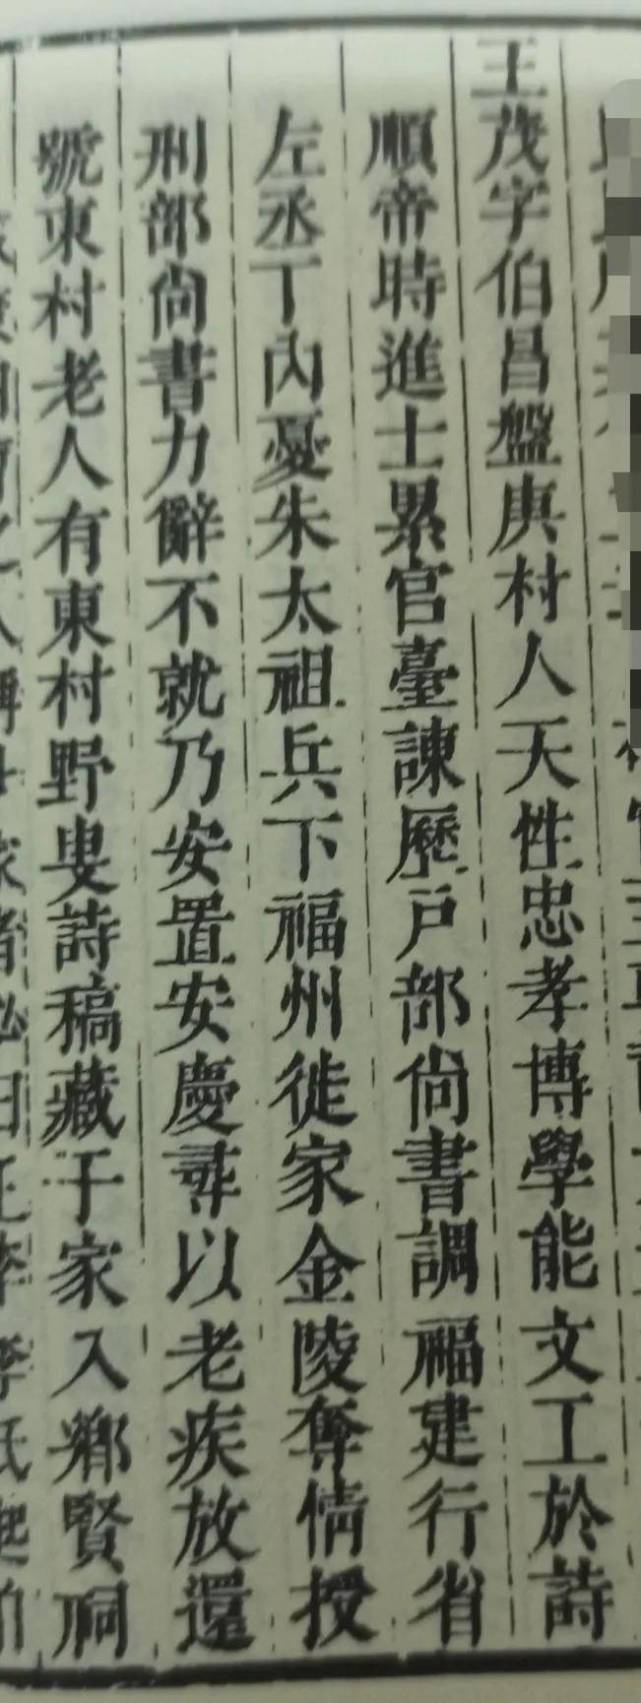 王茂字伯昌盤庚村人天性忠孝博學能文工於詩
順帝時進士累官臺諫歷戶部尙書調福建行省
左丞丁內憂朱太祖兵下福州徙家金陵奪情授
刑部尙書力辭不就乃安置安慶尋以老疾放還
號東村老人有東村野叟詩稿藏于家入鄕賢祠